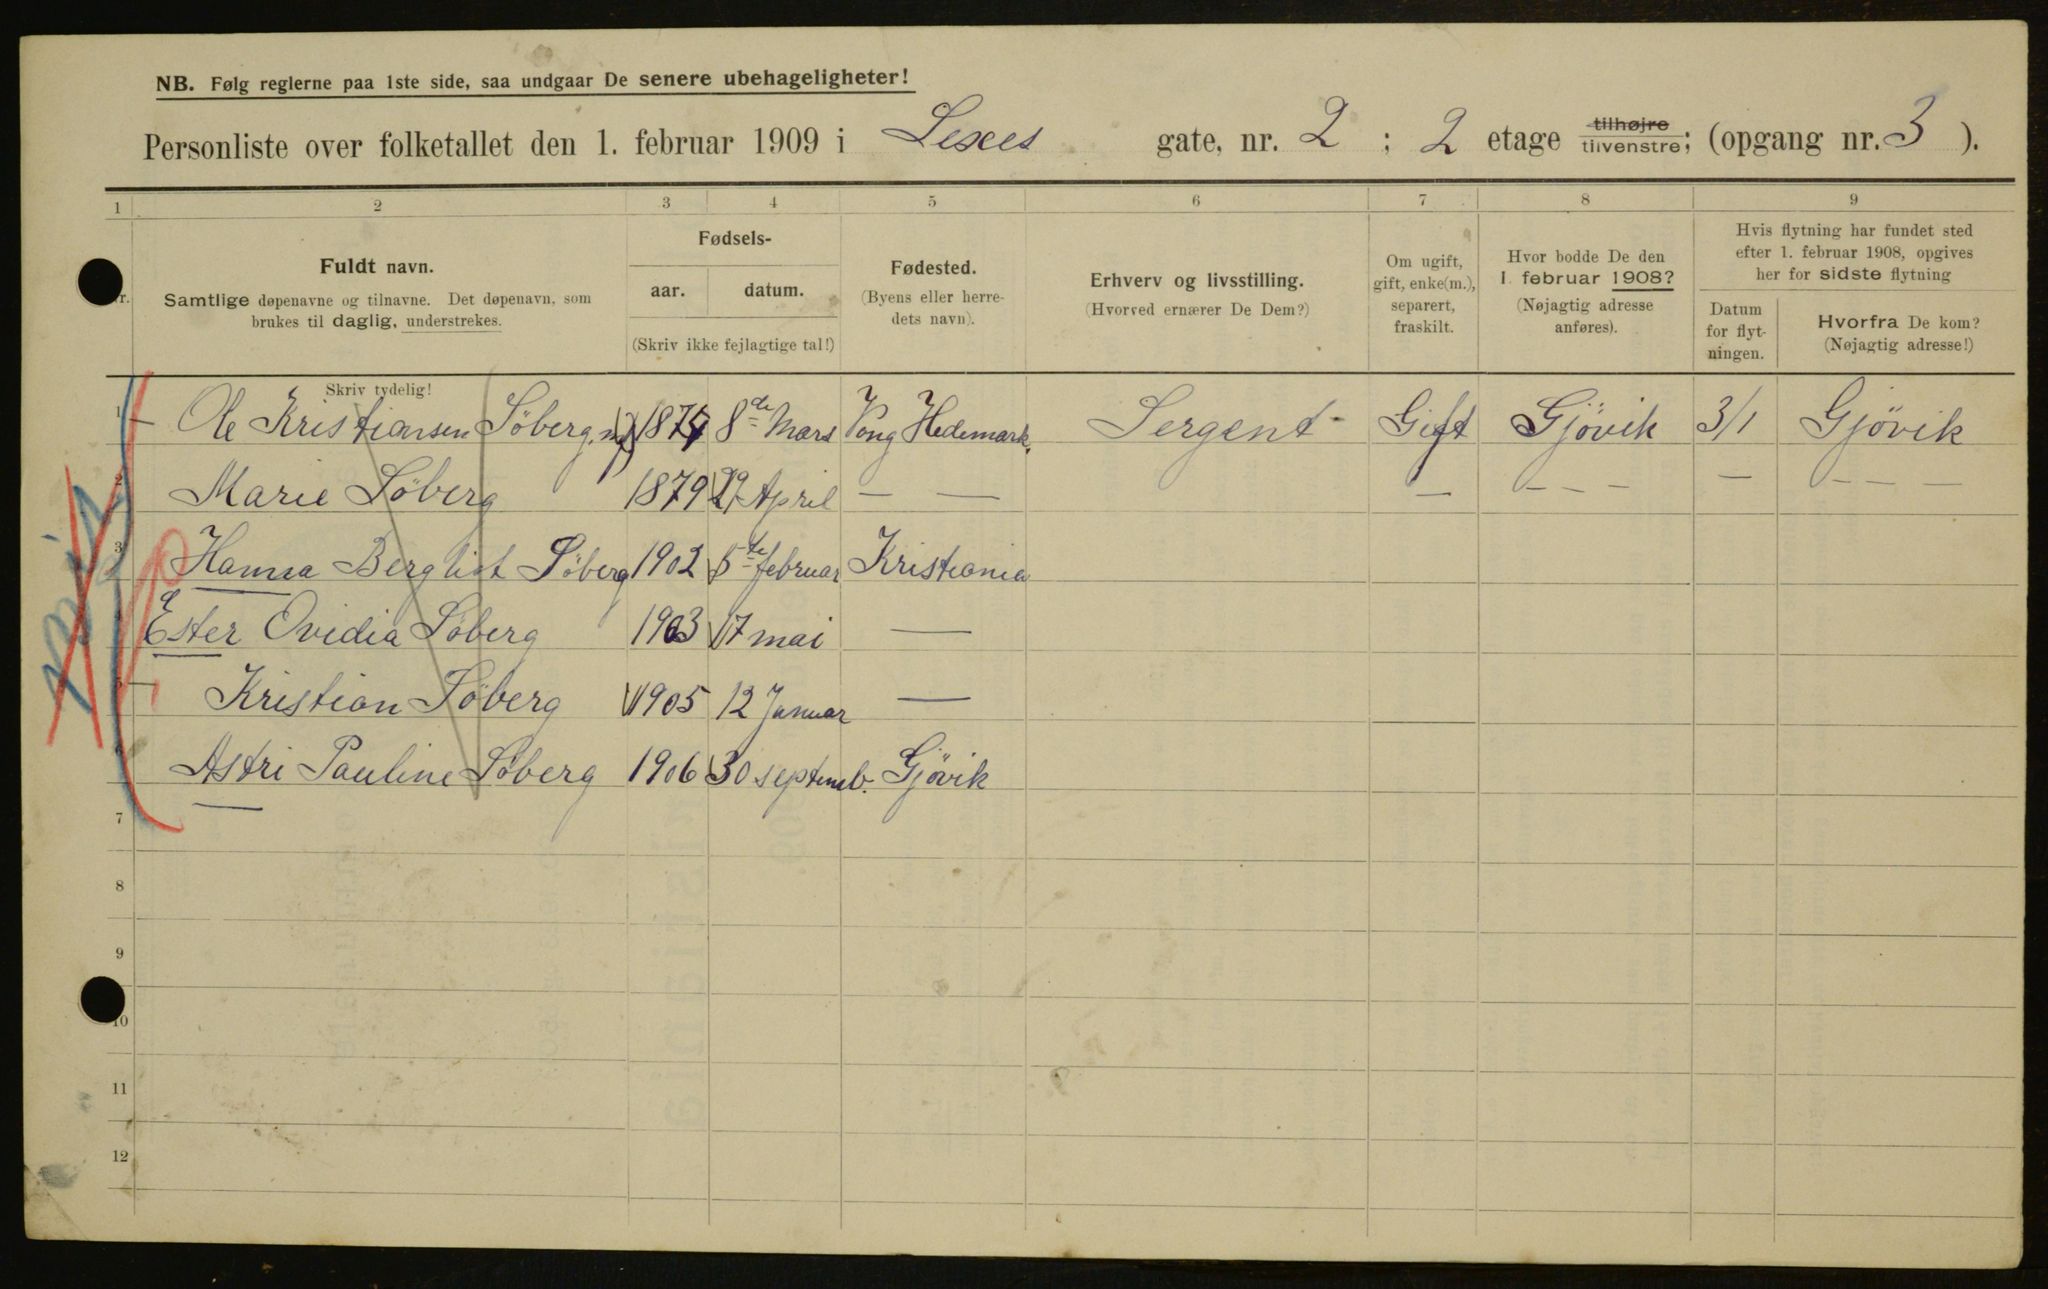 NB. Følg reglerne paa 1ste side, saa undgaar De senere ubehageligheter!
Personliste over folketallet den 1. februar 1909 i Lexels gate, nr. 2 ; 2 etage tilhøjre tilvenstre; (opgang nr. 3 ).
1 2 3 4 5 6 7 8 9
Nr.
Fuldt navn.
Samtlige døpenavne og tilnavne. Det døpenavn, som
brukes til daglig, understrekes.
Skriv tydelig!
Fødsels-
aar. datum.
(Skriv ikke fejlagtige tal!)
Fødested.
(Byens eller herre-
dets navn).
Erhverv og livsstilling.
(Hvorved ernærer De Dem?)
Om ugift,
gift, enke(m.),
separert,
fraskilt.
Hvor bodde De den
1. februar 1908?
(Nøjagtig adresse
anføres).
Hvis flytning har fundet sted
efter 1. februar 1908, opgives
her for sidste flytning
Datum
for flyt-
ningen.
Hvorfra De kom?
(Nøjagtig adresse!)
1 Ole Kristiansen Söberg 1874 8de Mars Vang Hedemark. Sergent Gift Gjövik 3/1 Gjövik
2 Marie Söberg 1879 29 April — — — – – – — – – –
3 Hanna Bergliot Söberg 1902 5te februar Kristiania
4 Ester Ovidia Söberg 1903 17 mai —
5 Kristian Söberg 1905 12 Januar —
6 Astri Pauline Söberg 1906 30 septemb. Gjövik
7
8
9
10
11
12